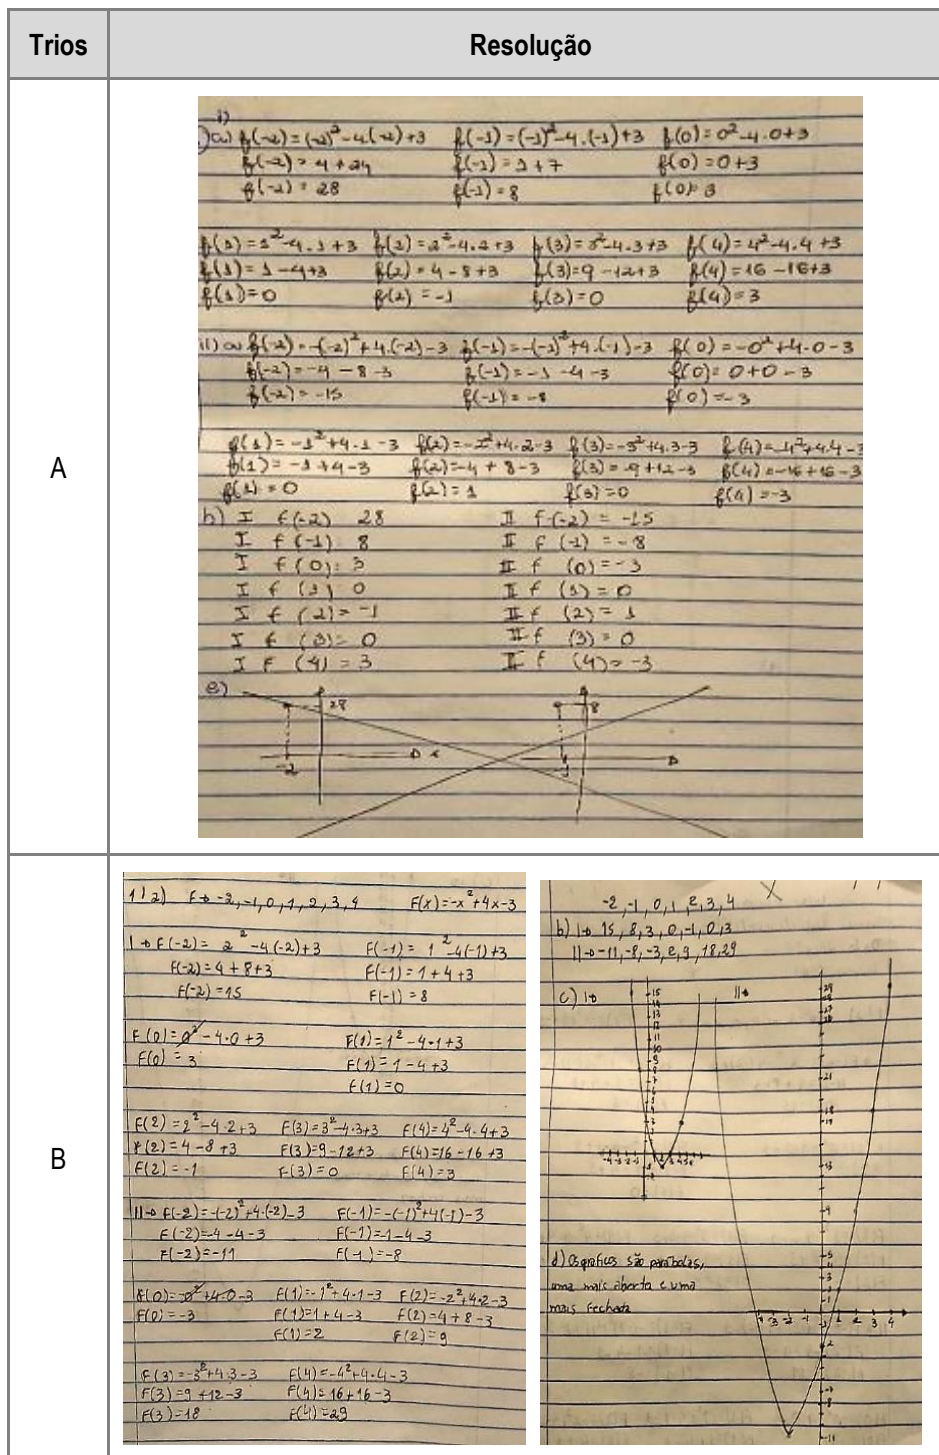 Trios Resolução
A
1)
a) f(-2) = (-2)² - 4(-2) + 3 f(-1) = (-1)² - 4.(-1) + 3 f(0) = 0² - 4.0 + 3
f(-2) = 4 + 24 f(-1) = 1 + 7 f(0) = 0 + 3
f(-2) = 28 f(-1) = 8 f(0) = 3
f(1) = 1² - 4.1 + 3 f(2) = 2² - 4.2 + 3 f(3) = 3² - 4.3 + 3 f(4) = 4² - 4.4 + 3
f(1) = 1 - 4 + 3 f(2) = 4 - 8 + 3 f(3) = 9 - 12 + 3 f(4) = 16 - 16 + 3
f(1) = 0 f(2) = -1 f(3) = 0 f(4) = 3
ii) a) f(-2) = -(-2)² + 4.(-2) - 3 f(-1) = -(-1)² + 4.(-1) - 3 f(0) = -0² + 4.0 - 3
f(-2) = -4 - 8 - 3 f(-1) = -1 - 4 - 3 f(0) = 0 + 0 - 3
f(-2) = -15 f(-1) = -8 f(0) = -3
f(1) = -1² + 4.1 - 3 f(2) = -2² + 4.2 - 3 f(3) = -3² + 4.3 - 3 f(4) = -4² + 4.4 - 3
f(1) = -1 + 4 - 3 f(2) = -4 + 8 - 3 f(3) = -9 + 12 - 3 f(4) = -16 + 16 - 3
f(1) = 0 f(2) = 1 f(3) = 0 f(4) = -3
b) I f(-2) 28 II f(-2) = -15
I f(-1) 8 II f(-1) = -8
I f(0) = 3 II f(0) = -3
I f(1) 0 II f(1) = 0
I f(2) = -1 II f(2) = 1
I f(3) = 0 II f(3) = 0
I f(4) = 3 II f(4) = -3
28 8
-2 x -1
B
1) a) F→ -2, -1, 0, 1, 2, 3, 4 F(x) = -x² + 4x - 3
I→ F(-2) = 2² - 4(-2) + 3 F(-1) = 1² - 4(-1) + 3
F(-2) = 4 + 8 + 3 F(-1) = 1 + 4 + 3
F(-2) = 15 F(-1) = 8
F(0) = 0² - 4·0 + 3 F(1) = 1² - 4·1 + 3
F(0) = 3 F(1) = 1 - 4 + 3
F(1) = 0
F(2) = 2² - 4·2 + 3 F(3) = 3² - 4·3 + 3 F(4) = 4² - 4·4 + 3
F(2) = 4 - 8 + 3 F(3) = 9 - 12 + 3 F(4) = 16 - 16 + 3
F(2) = -1 F(3) = 0 F(4) = 3
II→ F(-2) = -(-2)² + 4·(-2) - 3 F(-1) = -(-1)² + 4(-1) - 3
F(-2) = -4 - 4 - 3 F(-1) = -1 - 4 - 3
F(-2) = -11 F(-1) = -8
F(0) = -0² + 4·0 - 3 F(1) = -1² + 4·1 - 3 F(2) = -2² + 4·2 - 3
F(0) = -3 F(1) = 1 + 4 - 3 F(2) = 4 + 8 - 3
F(1) = 2 F(2) = 9
F(3) = -3² + 4·3 - 3 F(4) = -4² + 4·4 - 3
F(3) = 9 + 12 - 3 F(4) = 16 + 16 - 3
F(3) = 18 F(4) = 29
-2, -1, 0, 1, 2, 3, 4
b) I→ 15, 8, 3, 0, -1, 0, 3
II→ -11, -8, -3, 2, 9, 18, 29
c) I→ II→
d) Os graficos são parábolas,
uma mais aberta e uma
mais fechada